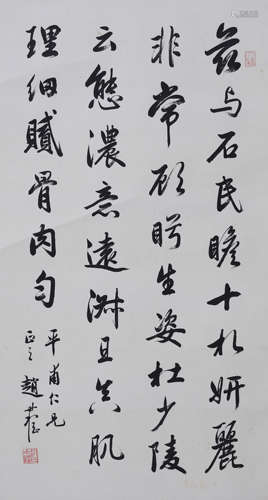 兹与石民瞻十札妍麗
非常顧眄生姿杜少陵
云態濃意遠淑且真肌
理細膩骨肉勻
平甫仁兄
正之 趙